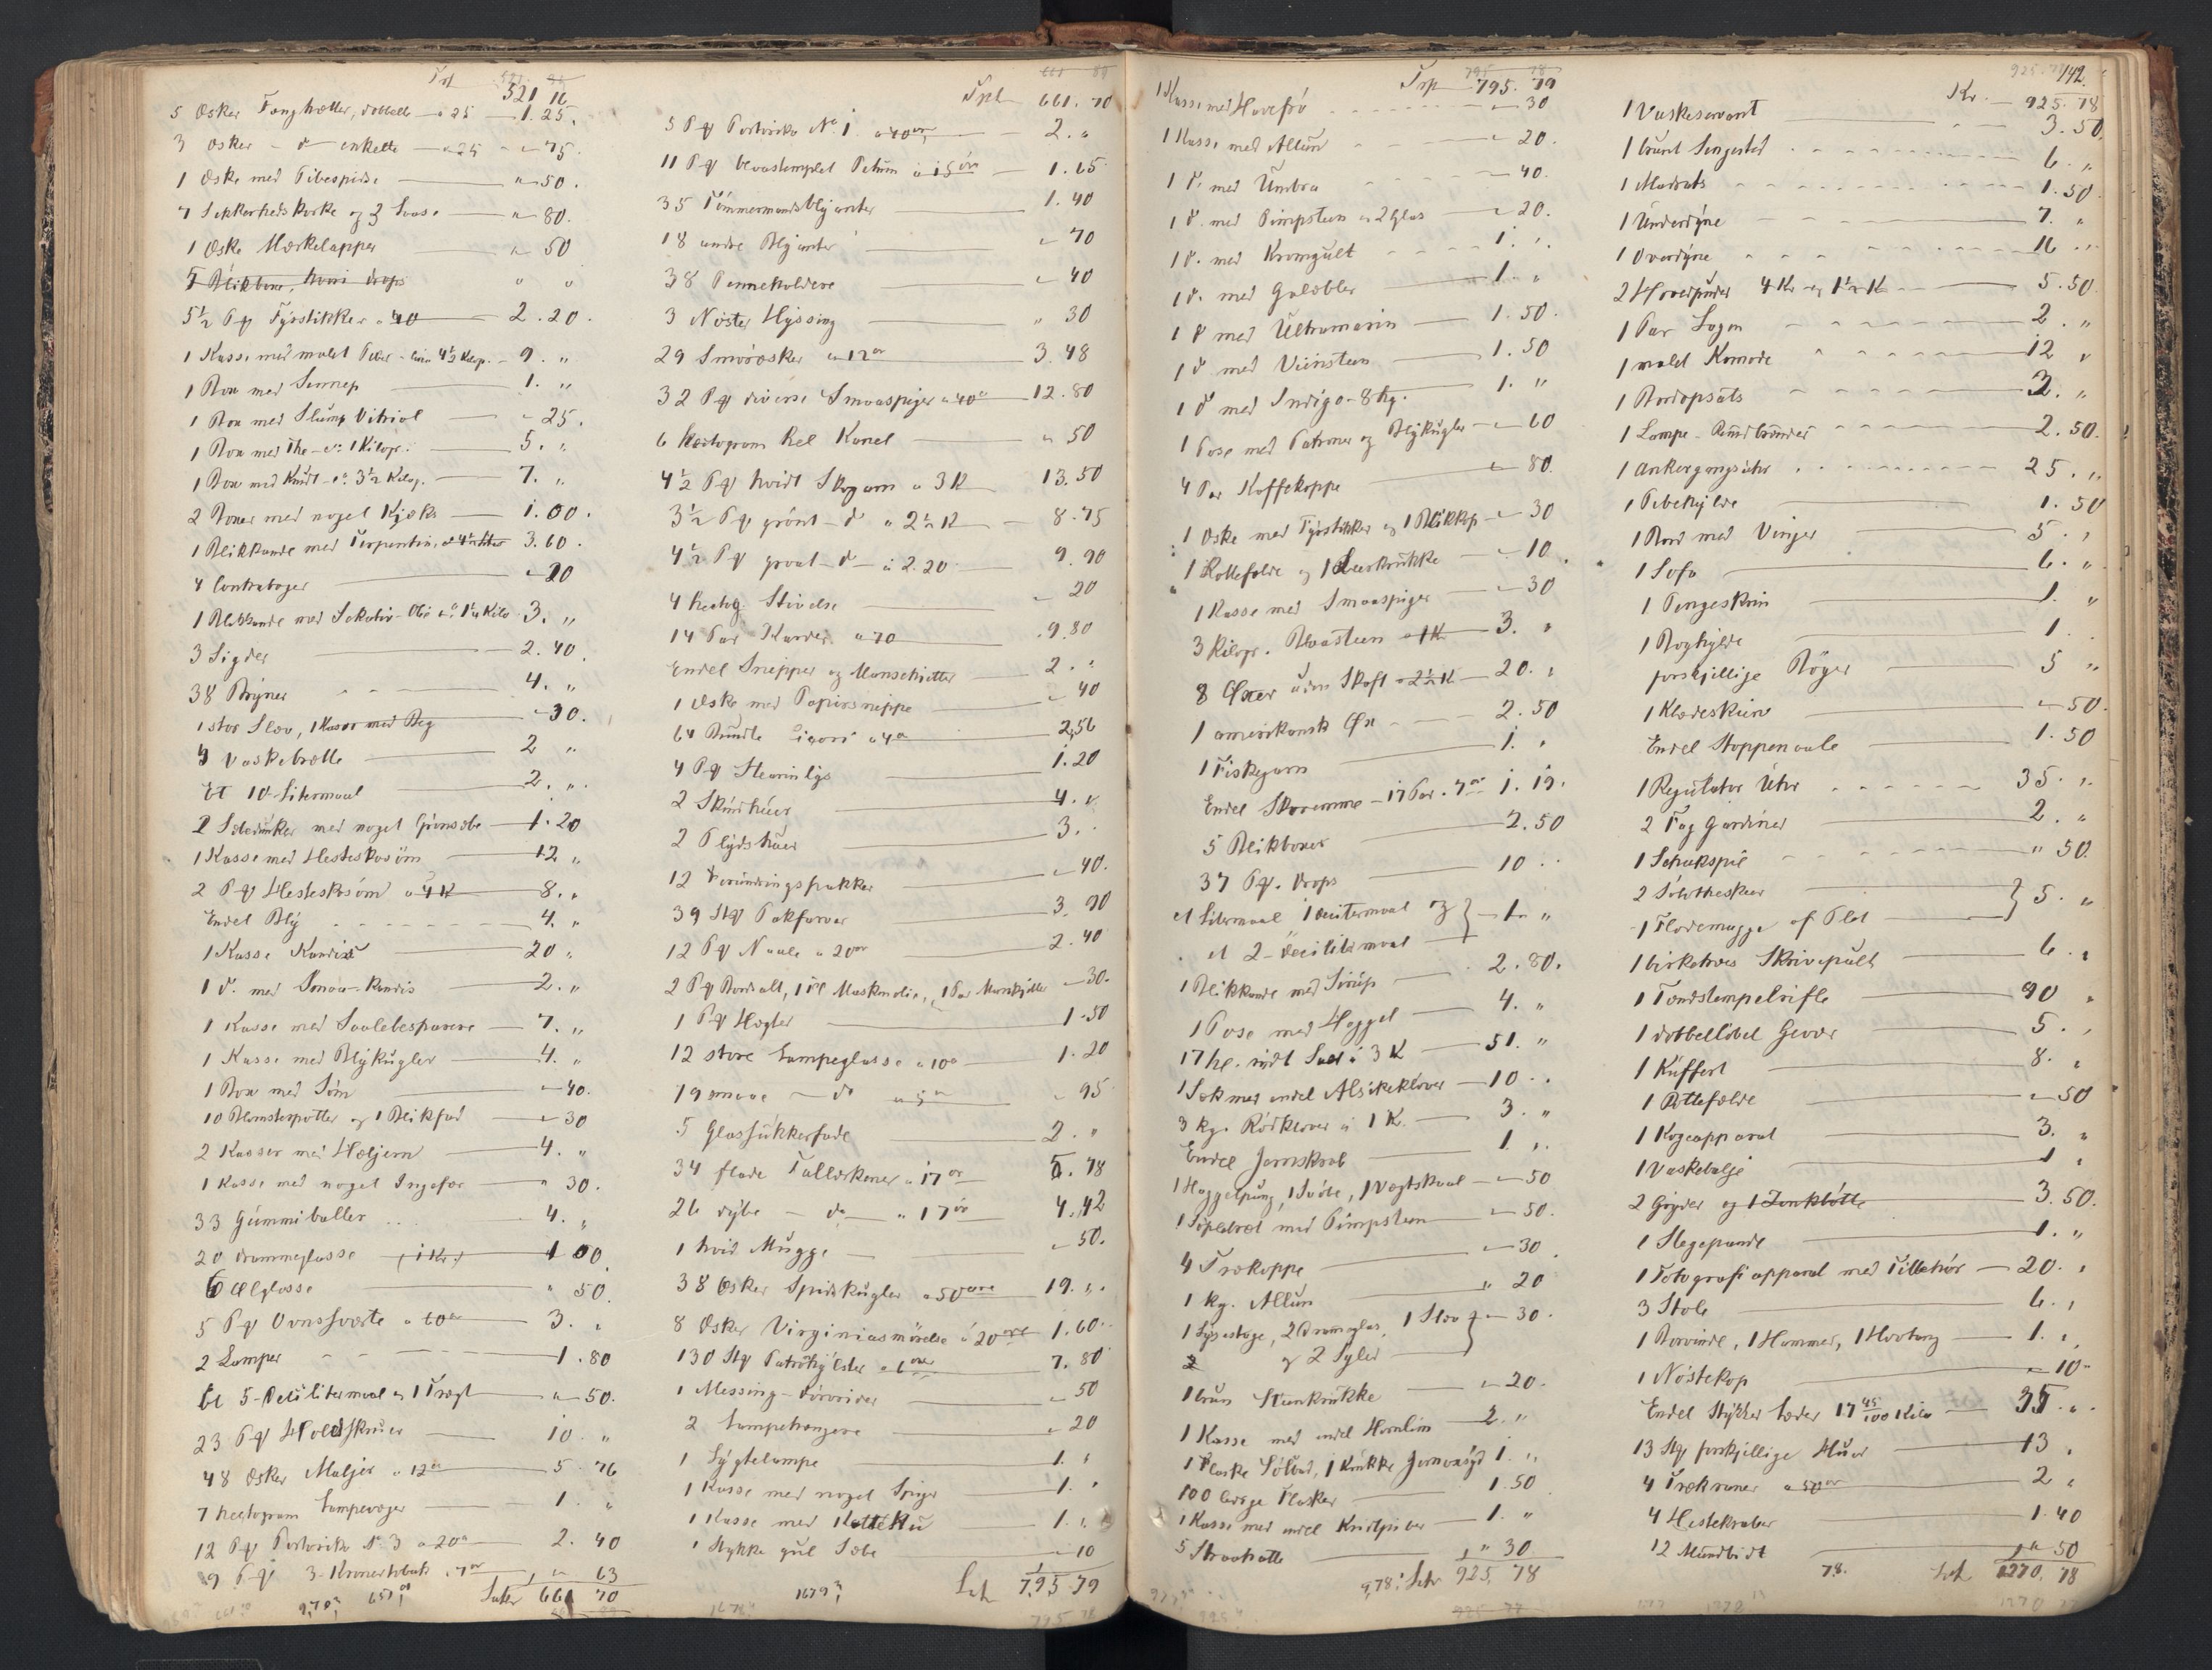 Trp 521 16
5 Æsker Fænghætter, dobbelte a 25 1.25.
3 Æsker - do enkelte a 25 " 75.
1 Æske med Pibespidse " 50.
7 Sikkerhedskorke og 3 Laase " 80.
1 Æske Mærkelapper " 50
5 Blikboxe, hvori drops " "
5½ Pq Fyrstikker a 40 2.20.
1 Kasse med malet Peber 4½ Kilogr. 9. "
1 Box med Sennep 1. "
1 Box med Slump Vitriol " 25.
1 Box med The 1 Kilogr. 5. "
1 Box med Krudt 3½ Kilog. 7. "
2 Boxer med noget Kjæks 1.00.
1 Blikkande med Terpentin, 3.60.
4 Contrabøger " 20
1 Blikkande med Sekativ-Olie 3. "
3 Sigder 2.40.
38 Bryner 4. "
1 stor Slev, 1 Kasse med Beg " 30.
4 Vaskebrætte 2 "
Et 10-Litermaal 2. "
2 Sæbedunker med noget Grønsæbe 1.20
1 Kasse med Hesteskosøm 12 "
2 Pq Hesteskosøm a 4 K 8. "
Endel Bly 4. "
1 Kasse Kandis 20 "
1 do. med Smaa-Kandis 2. "
1 Kasse med Saalebesparere 7. "
1 Kasse med Blykugler 4. "
1 Box med Søm " 40.
10 Blomsterpotter og 1 Blikfad " 30
2 Kasser med Hæljern 4. "
1 Kasse med noget Ingefær " 30.
33 Gummiballer 4. "
20 Drammeglasse 1 00
6 Ølglasse " 50.
5 Pq Ovnssværte a 60 3. "
2 Lamper 1.80
Et 5-Decilitermaal og 1 Tragt " 50.
23 Pq Holdskruer 10. "
48 Æsker Maljer a 12 5 76
7 hectogram Lampevæger 1. "
12 Pq Portoriko No 3 a 20 2. 40
9 Pq 3-Kronertobak a 7 " 63
Later 661 70
Trpt 661. 70
5 Pq Portoriko No. 1 a 40 2. "
11 Pq blaastemplet Petum a 15 øre 1.65
35 Tømmermandsblyanter 1.40
18 andre Blyanter " 70
38 Penneholdere " 40
3 Nøster Hyssing " 30
29 Smøræsker a 12 3.48
32 Pq diverse Smaaspiger a 40 12.80
6 hectogram hel Kanel " 50
4½ Pq hvidt Skogarn a 3 K 13.50
3½ Pq grønt do a 2½ K 8.75
4½ Pq graat do a 2.20 9.90
4 hectog. Stivelse " 20
14 Par Karder a 70 9.80
Endel Snipper og Manschetter 2. "
1 Æske med Papirsnippe " 40
64 Bundte Cigori a 4 2,56
4 Pq Stearinlys 1.20
2 Skindhuer 4. "
2 Plydshuer 3. "
12 Forundringspakker " 40.
39 Stk Pakfarver 3. 90
12 Pq Naale a 20 2.40
2 Pq Bordsalt, 1 Fl Maskinolie, 1 Par Manskjetter " 30.
1 Pq Hægter 1.50
12 store Lampeglasse a 10 1.20
19 smaae do a 5 " 95
5 Glassukkerfade 2. "
34 flade Tallerkener a 17 ør 5.78
26 dybe do a 17 ør 4,42
1 hvid Mugge " 50.
38 Æsker Spidskugler a 50 øre 19. "
8 Æsker Virginiasmørelse a 20 øre 1.60
130 Stk Patronhylster a 6 øre 7.80
1 Messing-Dørvrider " 50
2 Lampehængere " 20
1 Lygtelampe 1. "
1 Kasse med noget Spiger 1. "
1 Kasse med Kattesku 1. "
1 Stykke gul Sæbe " 10
Lat. 795 79
Trp 795. 79
1 Kasse med Havefrø " 30
1 Kasse med Allun " 20.
1 do. med Umbra " 40.
1 do. med Pimpsteen a 2 Glas " 20.
1 do. med Kromgult 1. "
1 do. med Galæbler 1. "
1 do med Ultramarin 1.50.
1 do med Viinsteen 1.50
1 do med Indigo - 8 hg. 1. "
1 Pose med Patroner og Blykugler " 60
4 Par Kaffekoppe " 80.
1 Æske med Fyrstikker og 1 Blikkop " 30
1 Rottefælde og 1 Leerkrukke " 10
1 Kasse med Smaaspiger " 30
3 Kilogr. Blaasteen a 1 K 3. "
8 Øxer uden Skaft a 2½ K 20. "
1 amerikansk Øx 2.50
1 Fiskegarn 1. "
Endel Skoremme - 17 Par a 7 ør 1. 19.
5 Blikboxer 2.50
37 Pq. Drops 10 "
et Litermaal, 1 Decilitermaal og } 1. "
et 2-Decilitermaal
1 Blikkande med Sirup 2.80.
1 Pose med Haggel 4. "
17 hl. sødt Salt a 3 K 51. "
1 Sæk med endel Alsikekløver 10 "
3 kg. Rødkløver a 1 K. 3. "
Endel Jernskrab 1. "
1 Haggelpung, 1 Svøbe, 1 Vægtskaal " 50
1 Sigtebræt med Pimpsteen " 50.
4 Trækoppe " 30
1 kg. Allun " 20
1 Lysestage, 2 Dramglas, 1 Slev } " 30.
og 2 Syler
1 brun Steenkrukke " 20.
1 Kasse med endel Hornlim 2. "
1 Flaske Sølbad, 1 Krukke Jernoxyd 1. "
100 ledige Flasker 1.50
1 Kasse med endel Kridtpiber 1. "
5 Straahatte " 30
Lat 925, 78
142
Kr. 925. 78
1 Vaskeservant 3.50
1 brunt Sengested 6. "
1 Madrats 1.50
1 Underdyne 7. "
1 Overdyne 16 "
2 Hovedpuder 4 Kr og 1½ K 5.50
1 Par Lagen 2. "
1 malet Komode 12 "
1 Bordopsats 3. "
1 Lampe-Rundbrænder 2.50.
1 Ankergangsuhr 25. "
1 Pibehylde 1.50
1 Bord med Vinger 5. "
1 Sofa 6. "
1 Pengeskrin 1. "
1 Boghylde 1.
forskjellige Bøger 5 "
1 Klædeskurv " 50.
Endel Stoppenaale 1.50
1 Regulator Uhr 35. "
2 Fag Gardiner 2. "
1 Schakspil " 50.
2 Sølvtheskeer } 5. "
1 Flødemugge af Plet
1 birketræes Skrivepult 6. "
1 Tandstempelrifle 90 "
1 dobbelløbet Gevær 5. "
1 Kuffert 8. "
1 Rottefælde " 50
1 Kogeapparat 3. "
1 Vaskebalje 1 "
2 Gryder og 1 Zinkbøtte 3.50.
1 Stegepande 1. "
1 Fotografiapparat med Tillbehør 20. "
3 Stole 6. "
1 Borvinde, 1 Hammer, 1 Hovtang 1. "
1 Nøstekop " 10
Endel Stykker Læder 17 45/100 Kilo 35. "
13 Stk forskjellige Huer 13 "
4 Trækraner a 50 ør 2 "
4 Hestekraber 1.40
12 Mundbidt " 50
Lat. 1270. 78